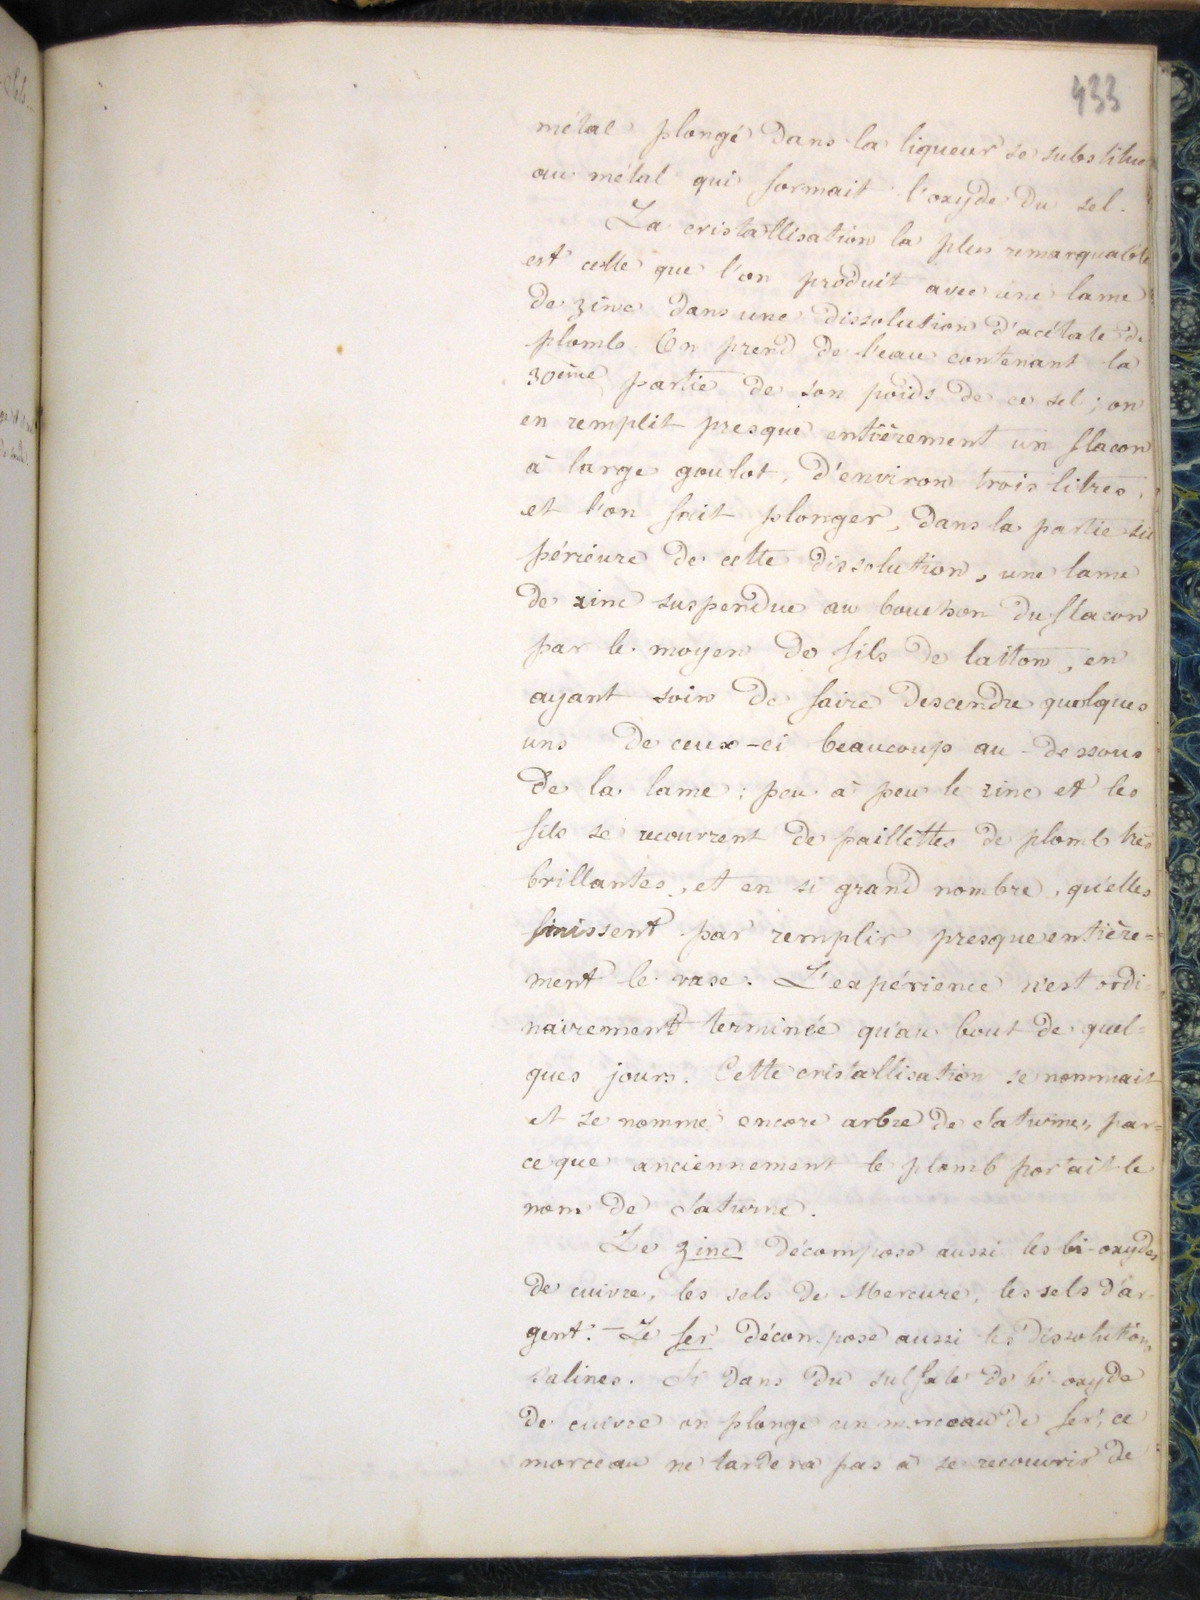 433
métal plongé dans la liqueur se substitue
au métal qui formait l'oxyde du sel.
La cristallisation la plus remarquable
est celle que l'on produit avec une lame
de zinc dans une dissolution d'acétate de
plomb. On prend de l'eau contenant la
30ème partie de son poids de ce sel; on
en remplit presque entièrement un flacon
à large goulot, d'environ trois litres,
et l'on fait plonger, dans la partie su
périeure de cette dissolution, une lame
de zinc suspendue au bouchon du flacon
par le moyen de fils de laiton, en
ayant soin de faire descendre quelques
uns de ceux-ci beaucoup au-dessous
de la lame; peu à peu le zinc et les
fils se recouvrent de paillettes de plomb très
brillantes, et en si grand nombre, qu'elles
finissent par remplir presque entière=
ment le vase. L'expérience n'est ordi=
nairement terminée qu'au bout de quel=
ques jours. Cette cristallisation se nommait
et se nomme encore arbre de saturne, par=
ce que anciennement le plomb portait le
nom de saturne.
Le zinc décompose aussi les bi-oxydes
de cuivre, les sels de Mercure, les sels d'ar
gent. — Le fer décompose aussi les dissolutions
salines. Si dans du sulfate de bi-oxyde
de cuivre on plonge un morceau de fer, ce
morceau ne tardera pas à se recouvrir de